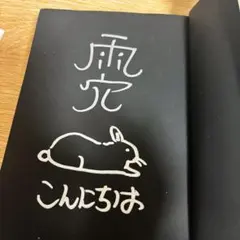 雨穴
こんにちは